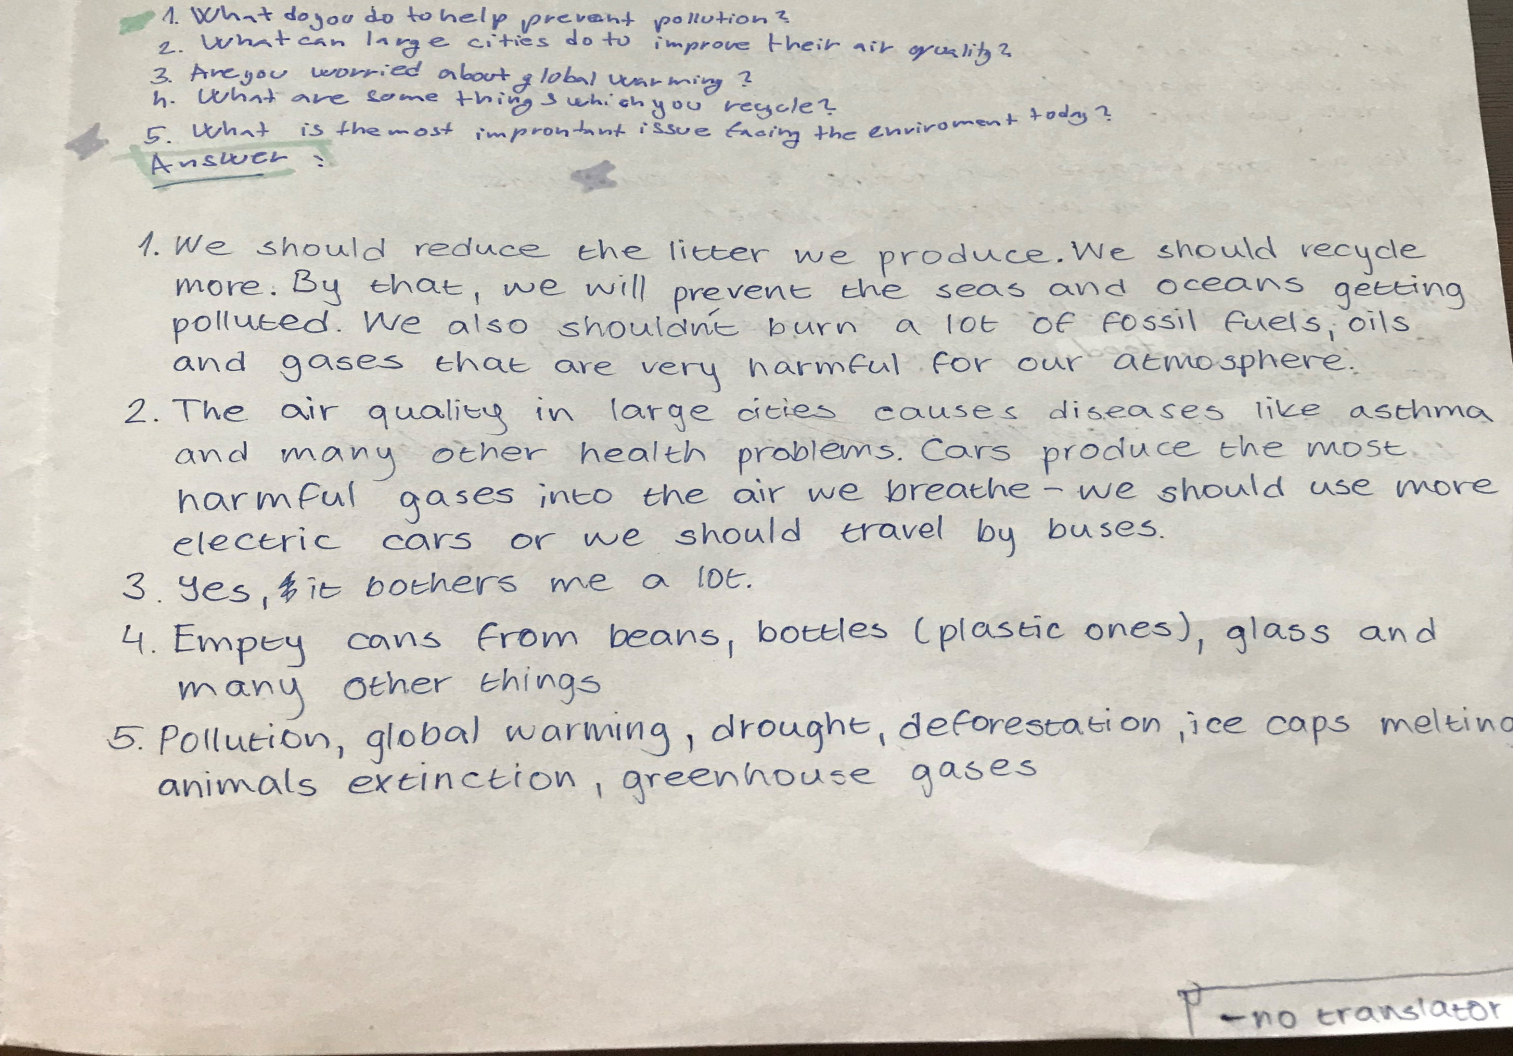 1. What do you do to help prevent pollution?
2. What can large cities do to improve their air quality?
3. Are you worried about global warming?
4. What are some things which you recycle?
5. What is the most improntant issue facing the enviroment today?
Answer :
1. We should reduce the litter we produce. We should recycle
more. By that, we will prevent the seas and oceans getting
polluted. We also shouldn't burn a lot of fossil fuels, oils
and gases that are very harmful for our atmosphere.
2. The air quality in large cities causes diseases like asthma
and many other health problems. Cars produce the most
harmful gases into the air we breathe - we should use more
electric cars or we should travel by buses.
3. Yes, it bothers me a lot.
4. Empty cans from beans, bottles (plastic ones), glass and
many other things
5. Pollution, global warming, drought, deforestation, ice caps melting
animals extinction, greenhouse gases
- no translator